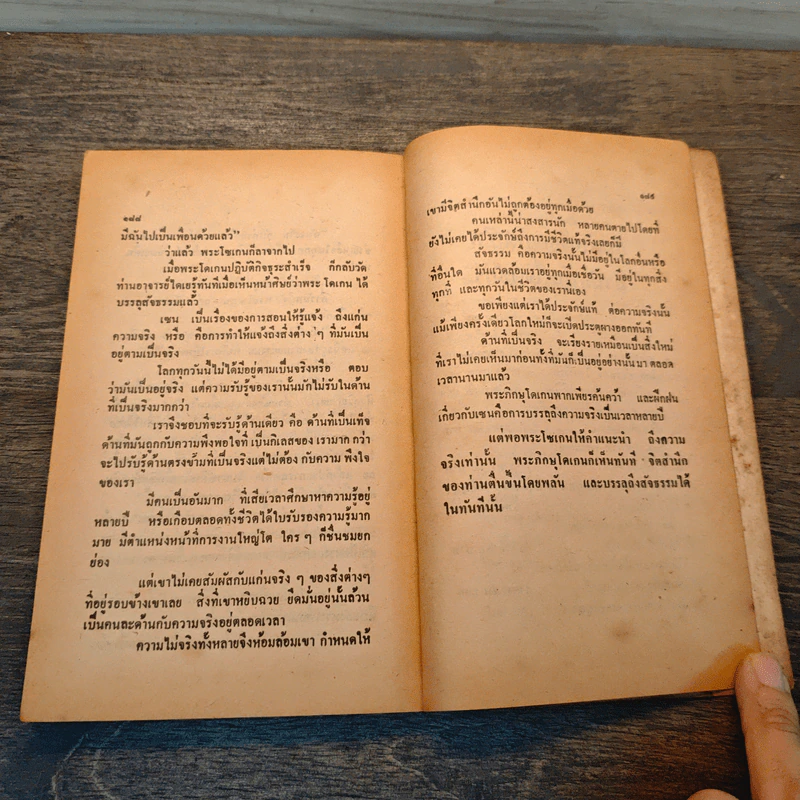 ๑๘๘
มีฉันไปเป็นเพื่อนด้วยแล้ว”
ว่าแล้ว พระโซเกนก็ลาจากไป
เมื่อพระโดเกนปฏิบัติกิจธุระสำเร็จ ก็กลับวัด
ท่านอาจารย์ไดเยรู้ทันทีเมื่อเห็นหน้าศิษย์ว่าพระ โดเกน ได้
บรรลุสัจธรรมแล้ว
เซน เป็นเรื่องของการสอนให้รู้แจ้ง ถึงแก่น
ความจริง หรือ คือการทำให้แจ้งถึงสิ่งต่าง ๆ ที่มันเป็น
อยู่ตามเป็นจริง
โลกทุกวันนี้ไม่ได้มีอยู่ตามเป็นจริงหรือ ตอบ
ว่ามันเป็นอยู่จริง แต่ความรับรู้ของเรานั้นมักไม่รับในด้าน
ที่เป็นจริงมากกว่า
เราจึงชอบที่จะรับรู้ด้านเดียว คือ ด้านที่เป็นเท็จ
ด้านที่มันถูกกับความพึงพอใจที่ เป็นกิเลสของ เรามาก กว่า
จะไปรับรู้ด้านตรงข้ามที่เป็นจริงแต่ไม่ต้อง กับความ พึงใจ
ของเรา
มีคนเป็นอันมาก ที่เสียเวลาศึกษาหาความรู้อยู่
หลายปี หรือเกือบตลอดทั้งชีวิตได้ใบรับรองความรู้มาก
มาย มีตำแหน่งหน้าที่การงานใหญ่โต ใคร ๆ ก็ชื่นชมยก
ย่อง
แต่เขาไม่เคยสัมผัสกับแก่นจริง ๆ ของสิ่งต่างๆ
ที่อยู่รอบข้างเขาเลย สิ่งที่เขาหยิบฉวย ยึดมั่นอยู่นั้นล้วน
เป็นคนละด้านกับความจริงอยู่ตลอดเวลา
ความไม่จริงทั้งหลายจึงห้อมล้อมเขา กำหนดให้
๑๘๙
เขามีจิตสำนึกอันไม่ถูกต้องอยู่ทุกเมื่อด้วย
คนเหล่านี้น่าสงสารนัก หลายคนตายไปโดยที่
ยังไม่เคยได้ประจักษ์ถึงการมีชีวิตแท้จริงเลยก็มี
สัจธรรม คือความจริงนั้นไม่มีอยู่ในโลกอื่นหรือ
ที่อื่นใด มันแวดล้อมเราอยู่ทุกเมื่อเชื่อวัน มีอยู่ในทุกสิ่ง
ทุกที่ และทุกวันในชีวิตของเรานี่เอง
ขอเพียงแต่เราได้ประจักษ์แท้ ต่อความจริงนั้น
แม้เพียงครั้งเดียวโลกใหม่ก็จะเปิดประตูผางออกทันที
ด้านที่เป็นจริง จะเรียงรายเหมือนเป็นสิ่งใหม่
ที่เราไม่เคยเห็นมาก่อนทั้งที่มันก็เป็นอยู่อย่างนั้น มา ตลอด
เวลานานมาแล้ว
พระภิกษุโดเกนพากเพียรค้นคว้า และฝึกฝน
เกี่ยวกับเซนคือการบรรลุถึงความจริงเป็นเวลาหลายปี
แต่พอพระโซเกนให้คำแนะนำ ถึงความ
จริงเท่านั้น พระภิกษุโดเกนก็เห็นทันที จิตสำนึก
ของท่านตื่นขึ้นโดยพลัน และบรรลุถึงสัจธรรมได้
ในทันทีนั้น